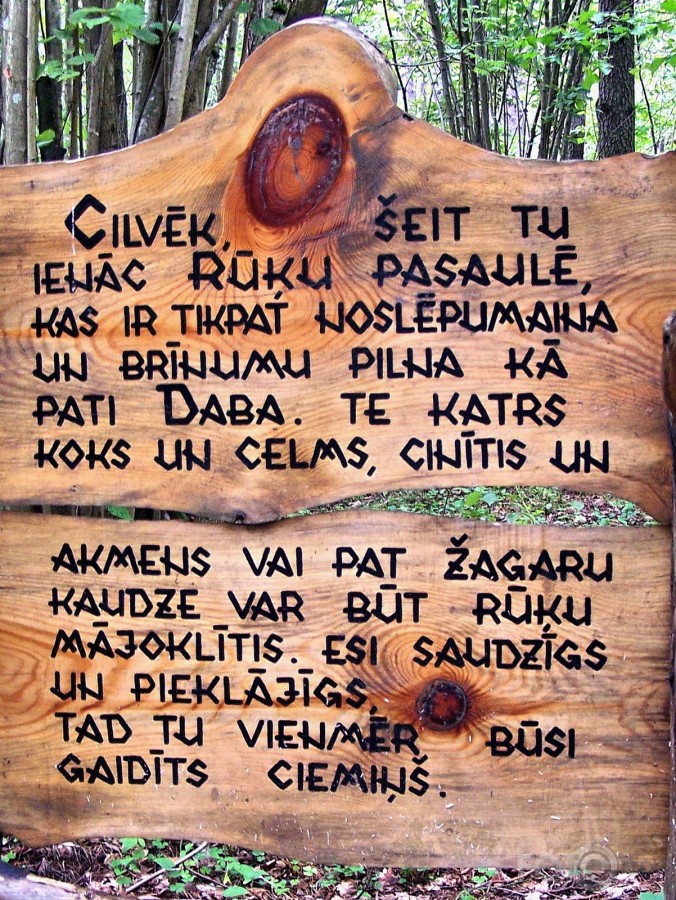 Cilvēk, šeit tu
ienāc Rūķu pasaulē,
kas ir tikpat noslēpumaina
un brīnumu pilna kā
pati Daba. Te katrs
koks un celms, cinītis un
akmens vai pat žagaru
kaudze var būt rūķu
mājoklītis. Esi saudzīgs
un pieklājīgs,
tad tu vienmēr būsi
gaidīts ciemiņš.